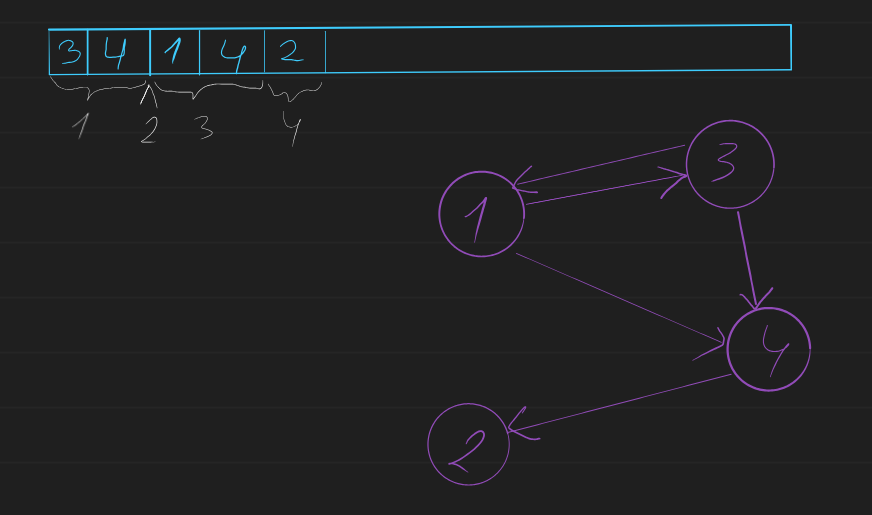 3 4 1 4 2
1 2 3 4
3
1
4
2